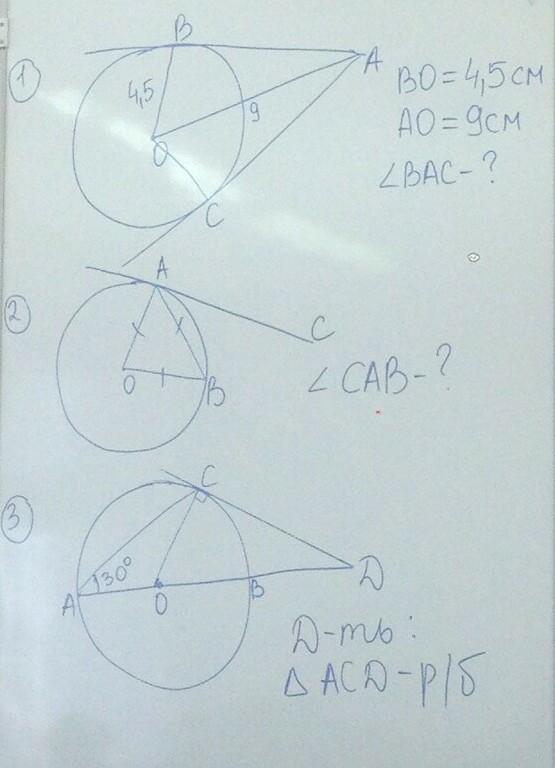 1
B
A
4,5
9
O
C
BO = 4,5 см
AO = 9 см
∠BAC - ?
2
A
C
O
B
∠ CAB - ?
3
C
30°
A
O
B
D
D-ть:
△ ACD - р/б